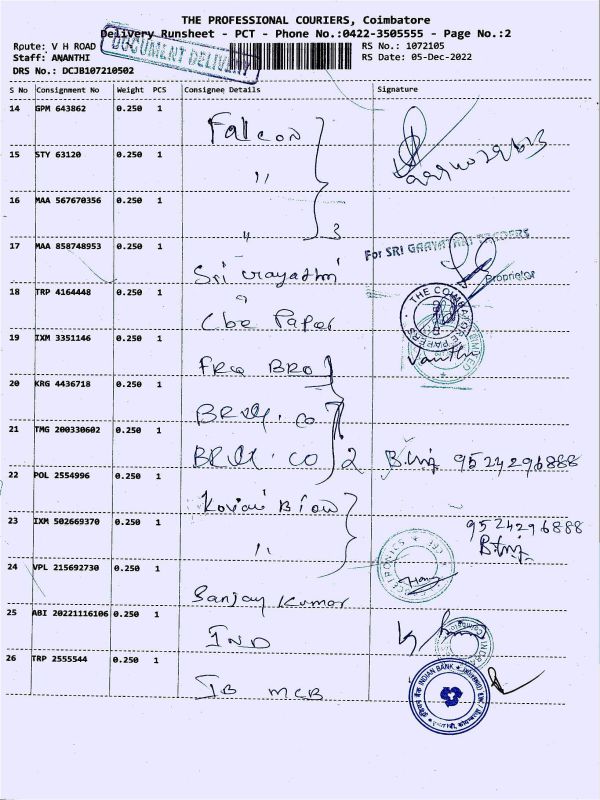 THE PROFESSIONAL COURIERS, Coimbatore
Delivery Runsheet - PCT - Phone No.:0422-3505555 - Page No.:2
Route: V H ROAD
RS No.: 1072105
Staff: ANANTHI
RS Date: 05-Dec-2022
DRS No.: DCJB107210502
DOCUMENT DELIVERY
S No Consignment No Weight PCS Consignee Details Signature
14 GPM 643862 0.250 1 Falcon
15 STY 63120 0.250 1 "
16 MAA 567670356 0.250 1 " 3
17 MAA 858748953 0.250 1 Sri
For SRI GAAYATHRI TRADERS
Proprietor
18 TRP 4164448 0.250 1 Cbe Paper
THE COIMBATORE PAPERS
19 IXM 3351146 0.250 1
20 KRG 4436718 0.250 1
21 TMG 200330602 0.250 1 2 9524296888
22 POL 2554996 0.250 1 Kovai
23 IXM 502669370 0.250 1 " 9524296888
24 VPL 215692730 0.250 1 Sanjay Kumar
25 ABI 20221116106 0.250 1 IND
26 TRP 2555544 0.250 1 IB MCB
INDIAN BANK